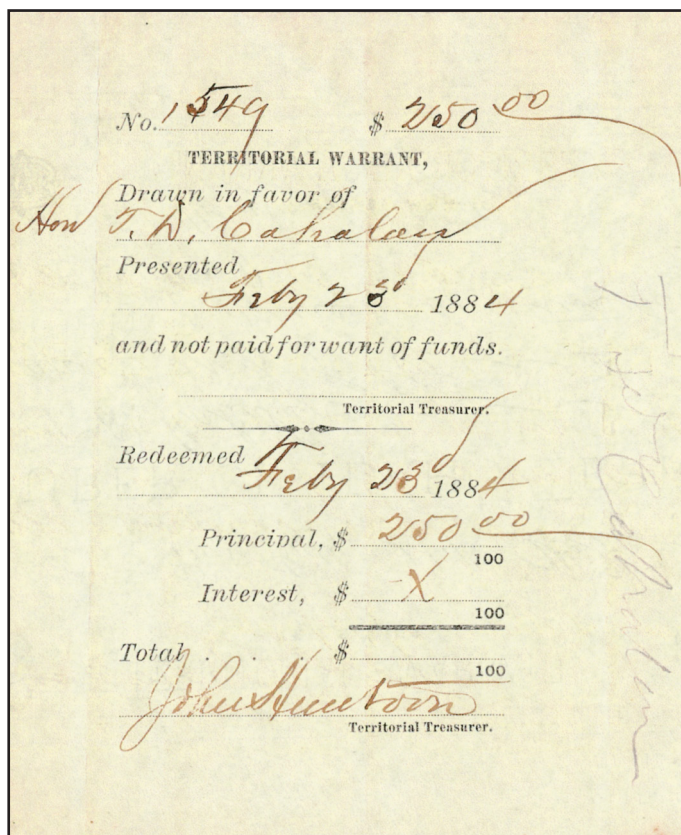 No. 1549 $ 250 00
TERRITORIAL WARRANT,
Drawn in favor of
Hon T. D. Cahalan
Presented
Feby 23d 1884
and not paid for want of funds.
Territorial Treasurer.
Redeemed
Feby 23d 1884
Principal, $ 250 00
100
Interest, $ X
100
Total . . . $
100
John Huntoon
Territorial Treasurer.
T D Cahalan